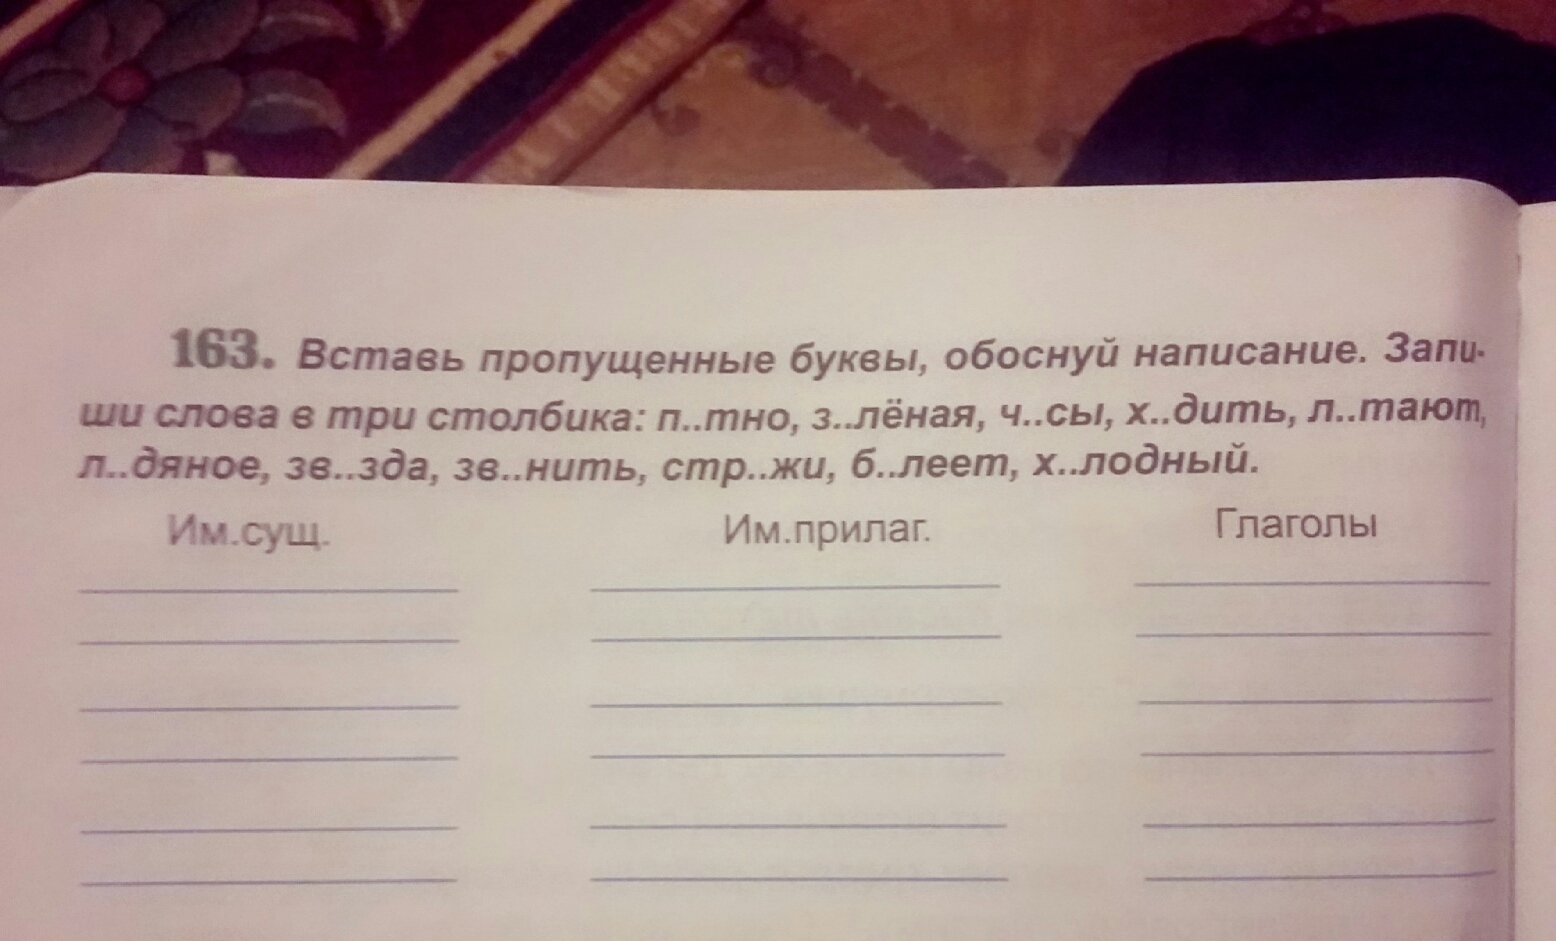 163. Вставь пропущенные буквы, обоснуй написание. Запи-
ши слова в три столбика: п..тно, з..лёная, ч..сы, х..дить, л..тают,
л..дяное, зв..зда, зв..нить, стр..жи, б..леет, х..лодный.
Им.сущ. Им.прилаг. Глаголы